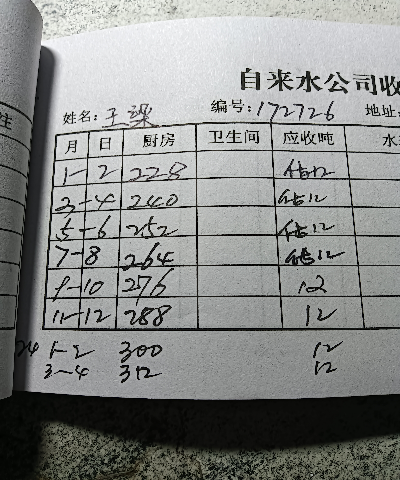 自来水公司收
姓名: 王梁 编号: 172726 地址:
月 日 厨房 卫生间 应收吨 水
1-2 228 估12
3-4 240 估12
5-6 252 估12
7-8 264 估12
9-10 276 12
11-12 288 12
24 1-2 300 12
3-4 312 12
注